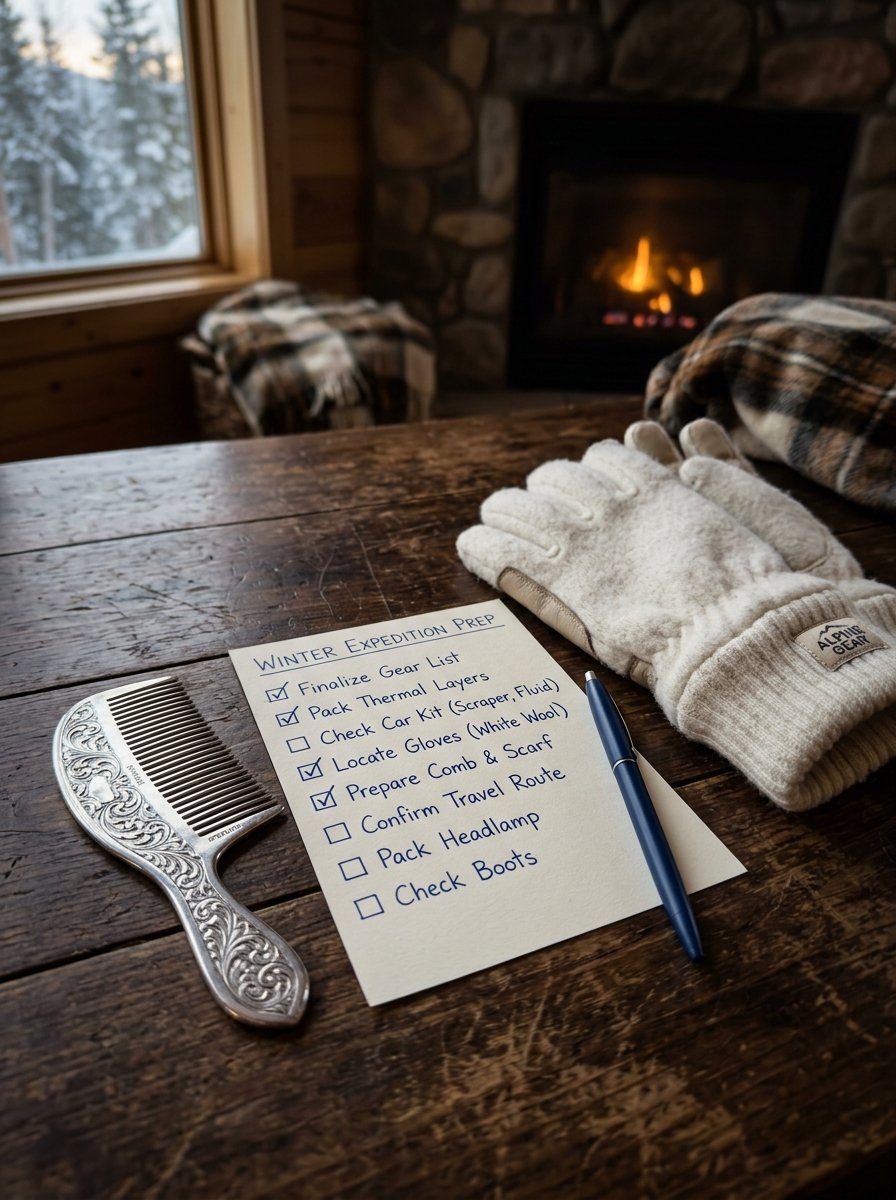 WINTER EXPEDITION PREP
Finalize Gear List
Pack Thermal Layers
Check Car Kit (Scraper, Fluid)
Locate Gloves (White Wool)
Prepare Comb & Scarf
Confirm Travel Route
Pack Headlamp
Check Boots
ALPINE
GEAR
STERLING